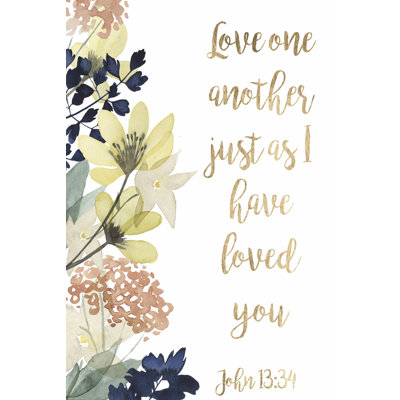 Love one
another
just as I
have
loved
you
John 13:34